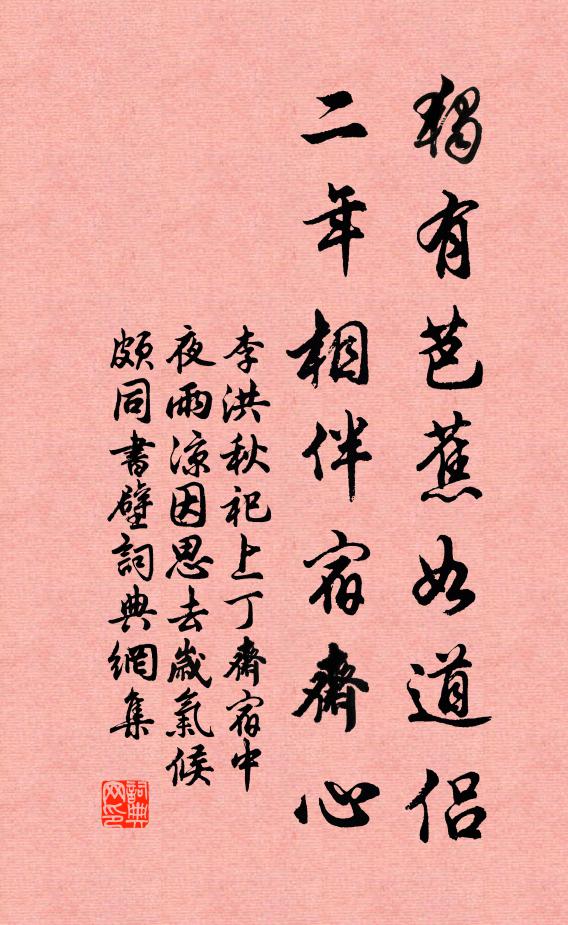 獨有芭蕉如道侶
二年相伴宿齋心
李洪秋祀上丁齋宿中
夜雨涼因思去歲氣候
頗同書壁詞典網集
詞典网印